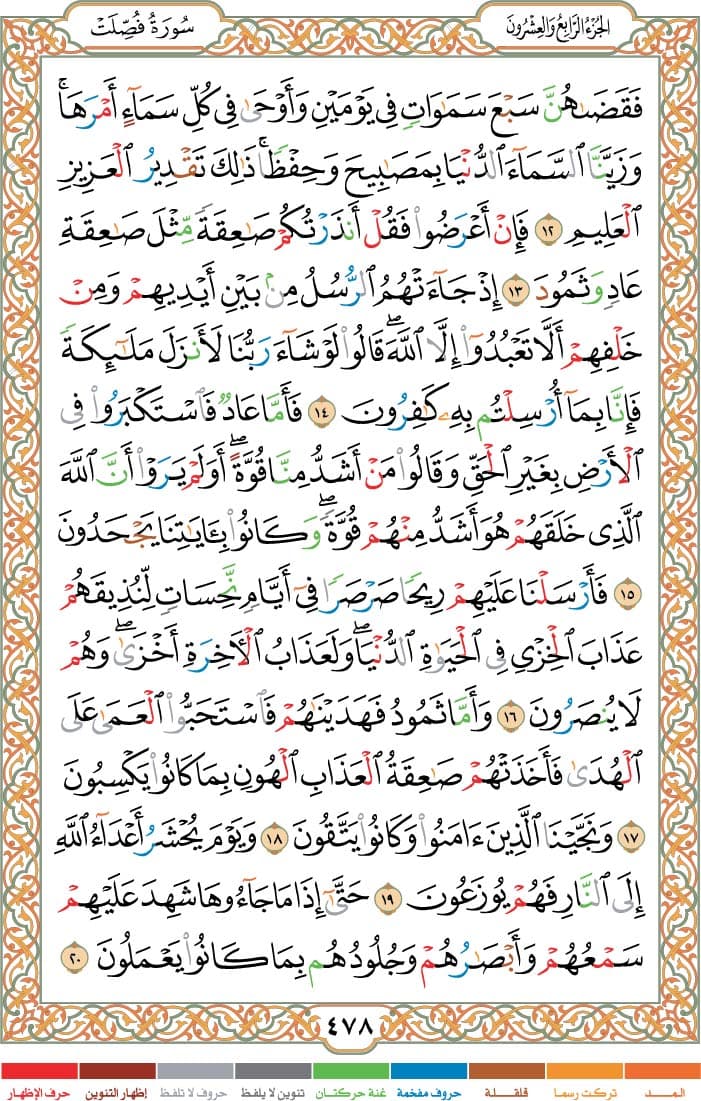 الجزء الرابع والعشرون
سورة فصلت
فَقَضَىٰهُنَّ سَبْعَ سَمَٰوَاتٖ فِي يَوْمَيْنِ وَأَوْحَىٰ فِي كُلِّ سَمَآءٍ أَمْرَهَاۚ
وَزَيَّنَّا ٱلسَّمَآءَ ٱلدُّنْيَا بِمَصَٰبِيحَ وَحِفْظٗاۚ ذَٰلِكَ تَقْدِيرُ ٱلْعَزِيزِ
ٱلْعَلِيمِ ١٢ فَإِنْ أَعْرَضُوا۟ فَقُلْ أَنذَرْتُكُمْ صَٰعِقَةٗ مِّثْلَ صَٰعِقَةِ
عَادٖ وَثَمُودَ ١٣ إِذْ جَآءَتْهُمُ ٱلرُّسُلُ مِنۢ بَيْنِ أَيْدِيهِمْ وَمِنْ
خَلْفِهِمْ أَلَّا تَعْبُدُوٓا۟ إِلَّا ٱللَّهَۖ قَالُوا۟ لَوْ شَآءَ رَبُّنَا لَأَنزَلَ مَلَٰٓئِكَةٗ
فَإِنَّا بِمَآ أُرْسِلْتُم بِهِۦ كَٰفِرُونَ ١٤ فَأَمَّا عَادٞ فَٱسْتَكْبَرُوا۟ فِي
ٱلْأَرْضِ بِغَيْرِ ٱلْحَقِّ وَقَالُوا۟ مَنْ أَشَدُّ مِنَّا قُوَّةًۖ أَوَلَمْ يَرَوْا۟ أَنَّ ٱللَّهَ
ٱلَّذِي خَلَقَهُمْ هُوَ أَشَدُّ مِنْهُمْ قُوَّةٗۖ وَكَانُوا۟ بِـَٔايَٰتِنَا يَجْحَدُونَ
١٥ فَأَرْسَلْنَا عَلَيْهِمْ رِيحٗا صَرْصَرٗا فِيٓ أَيَّامٖ نَّحِسَاتٖ لِّنُذِيقَهُمْ
عَذَابَ ٱلْخِزْيِ فِي ٱلْحَيَوٰةِ ٱلدُّنْيَاۖ وَلَعَذَابُ ٱلْأٓخِرَةِ أَخْزَىٰۖ وَهُمْ
لَا يُنصَرُونَ ١٦ وَأَمَّا ثَمُودُ فَهَدَيْنَٰهُمْ فَٱسْتَحَبُّوا۟ ٱلْعَمَىٰ عَلَى
ٱلْهُدَىٰ فَأَخَذَتْهُمْ صَٰعِقَةُ ٱلْعَذَابِ ٱلْهُونِ بِمَا كَانُوا۟ يَكْسِبُونَ
١٧ وَنَجَّيْنَا ٱلَّذِينَ ءَامَنُوا۟ وَكَانُوا۟ يَتَّقُونَ ١٨ وَيَوْمَ يُحْشَرُ أَعْدَآءُ ٱللَّهِ
إِلَى ٱلنَّارِ فَهُمْ يُوزَعُونَ ١٩ حَتَّىٰٓ إِذَا مَا جَآءُوهَا شَهِدَ عَلَيْهِمْ
سَمْعُهُمْ وَأَبْصَٰرُهُمْ وَجُلُودُهُم بِمَا كَانُوا۟ يَعْمَلُونَ ٢٠
٤٧٨
المــد تركت رسما قلقلة حروف مفخمة غنة حركتان تنوين لا يلفظ حروف لا تلفظ إظهار التنوين حرف الإظهار